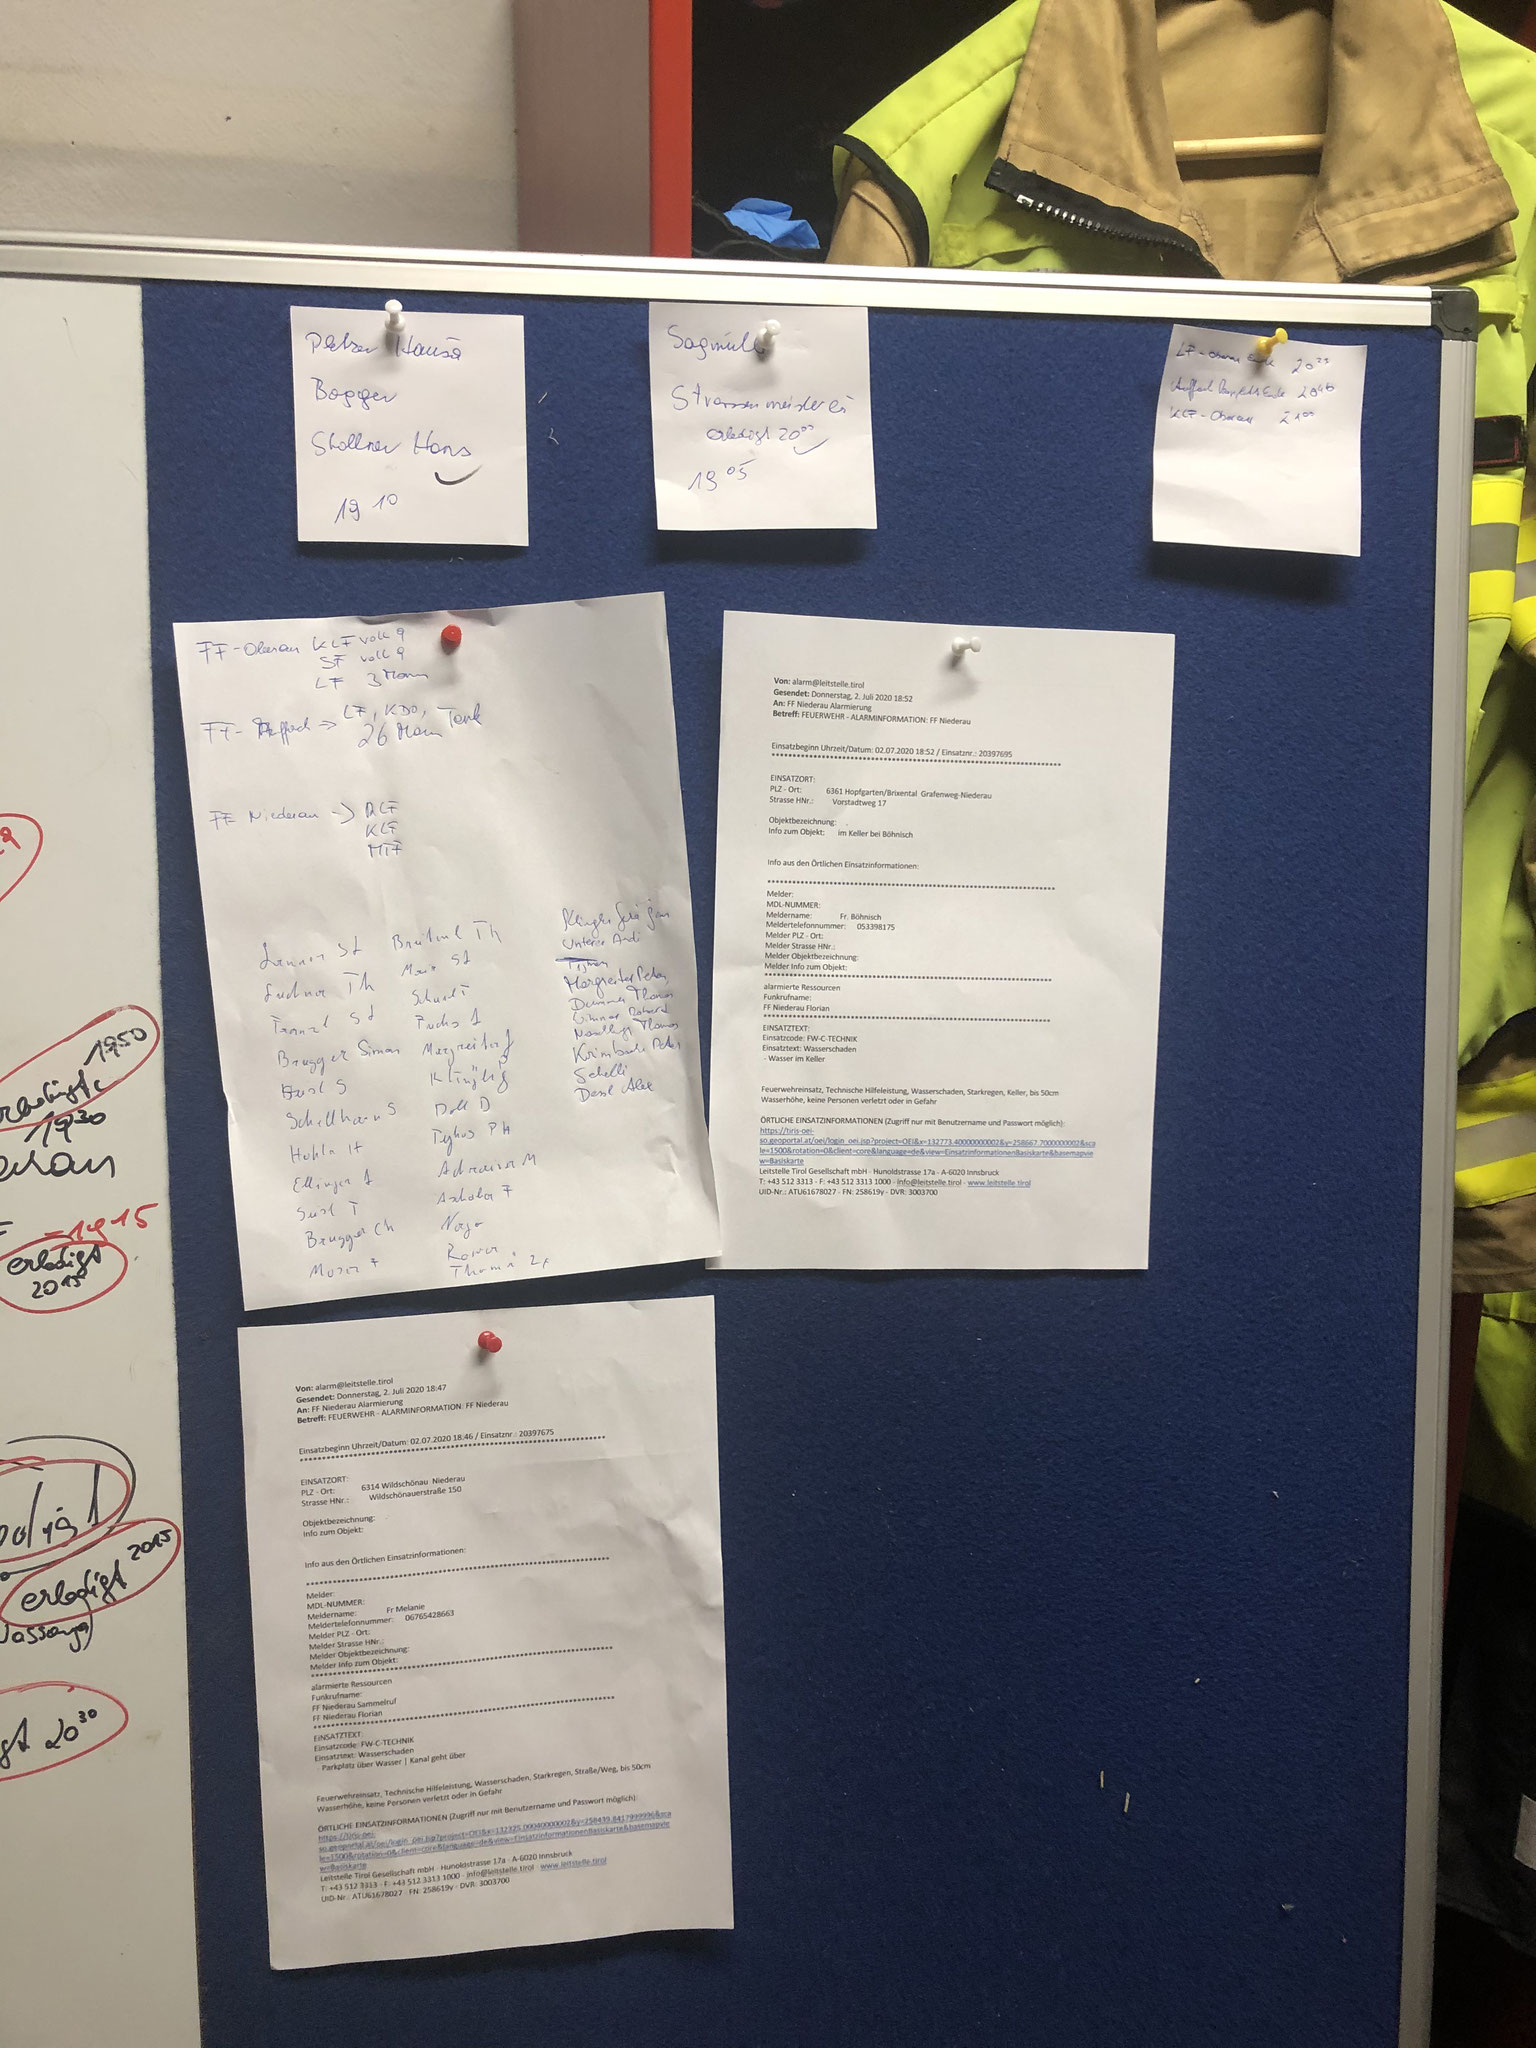 Bagger
Stollner Hans
19 10
Sagmüller
Strassenmeisterei
erledigt 20 00
19 05
20 25
20 46
KLF - Oberau 21 00
FF-Oberau KLF voll 9
SF voll 9
LF 3 Mann
FF- Auffach → LF, KDO, Tank
26 Mann
FF Niederau → RLF
KLF
MTF
Luchner Th
Brugger Simon
Schellhorn S
Hohlr H
Ellinger J
Brugger Ch
Moser F
Th
Fuchs J
Margreiter J
Doll D
PH
M
Ascholer F
Naga
Thomi 2x
Unterer Andi
Margreiter Peter
Thomas
Thomas
Krimbach Peter
Schelli
Alex
Von: alarm@leitstelle.tirol
Gesendet: Donnerstag, 2. Juli 2020 18:52
An: FF Niederau Alarmierung
Betreff: FEUERWEHR - ALARMINFORMATION: FF Niederau
Einsatzbeginn Uhrzeit/Datum: 02.07.2020 18:52 / Einsatznr.: 20397695
EINSATZORT:
PLZ - Ort: 6361 Hopfgarten/Brixental Grafenweg-Niederau
Strasse HNr.: Vorstadtweg 17
Objektbezeichnung:
Info zum Objekt: im Keller bei Böhnisch
Info aus den Örtlichen Einsatzinformationen:
Melder:
MDL-NUMMER:
Meldername: Fr. Böhnisch
Meldertelefonnummer: 053398175
Melder PLZ - Ort:
Melder Strasse HNr.:
Melder Objektbezeichnung:
Melder Info zum Objekt:
alarmierte Ressourcen
Funkrufname:
FF Niederau Florian
EINSATZTEXT:
Einsatzcode: FW-C-TECHNIK
Einsatztext: Wasserschaden
- Wasser im Keller
Feuerwehreinsatz, Technische Hilfeleistung, Wasserschaden, Starkregen, Keller, bis 50cm
Wasserhöhe, keine Personen verletzt oder in Gefahr
ÖRTLICHE EINSATZINFORMATIONEN (Zugriff nur mit Benutzername und Passwort möglich):
https://tiris-oei-
so.geoportal.at/oei/login_oei.jsp?project=OEI&x=132773.40000000002&y=258667.7000000002&sca
le=1500&rotation=0&client=core&language=de&view=EinsatzinformationenBasiskarte&basemapvie
w=Basiskarte
Leitstelle Tirol Gesellschaft mbH - Hunoldstrasse 17a - A-6020 Innsbruck
T: +43 512 3313 - F: +43 512 3313 1000 - info@leitstelle.tirol - www.leitstelle.tirol
UID-Nr.: ATU61678027 - FN: 258619y - DVR: 3003700
Von: alarm@leitstelle.tirol
Gesendet: Donnerstag, 2. Juli 2020 18:47
An: FF Niederau Alarmierung
Betreff: FEUERWEHR - ALARMINFORMATION: FF Niederau
Einsatzbeginn Uhrzeit/Datum: 02.07.2020 18:46 / Einsatznr.: 20397675
EINSATZORT:
PLZ - Ort: 6314 Wildschönau Niederau
Strasse HNr.: Wildschönauerstraße 150
Objektbezeichnung:
Info zum Objekt:
Info aus den Örtlichen Einsatzinformationen:
Melder:
MDL-NUMMER:
Meldername: Fr Melanie
Meldertelefonnummer: 06765428663
Melder PLZ - Ort:
Melder Strasse HNr.:
Melder Objektbezeichnung:
Melder Info zum Objekt:
alarmierte Ressourcen
Funkrufname:
FF Niederau Sammelruf
FF Niederau Florian
EINSATZTEXT:
Einsatzcode: FW-C-TECHNIK
Einsatztext: Wasserschaden
- Parkplatz über Wasser | Kanal geht über
Feuerwehreinsatz, Technische Hilfeleistung, Wasserschaden, Starkregen, Straße/Weg, bis 50cm
Wasserhöhe, keine Personen verletzt oder in Gefahr
ÖRTLICHE EINSATZINFORMATIONEN (Zugriff nur mit Benutzername und Passwort möglich):
https://tiris-oei-
le=1500&rotation=0&client=core&language=de&view=EinsatzinformationenBasiskarte&basemapvie
w=Basiskarte
Leitstelle Tirol Gesellschaft mbH - Hunoldstrasse 17a - A-6020 Innsbruck
T: +43 512 3313 - F: +43 512 3313 1000 - info@leitstelle.tirol - www.leitstelle.tirol
UID-Nr.: ATU61678027 - FN: 258619y - DVR: 3003700
1950
1930
-1915
erledigt
2015
erledigt 2015
20 30